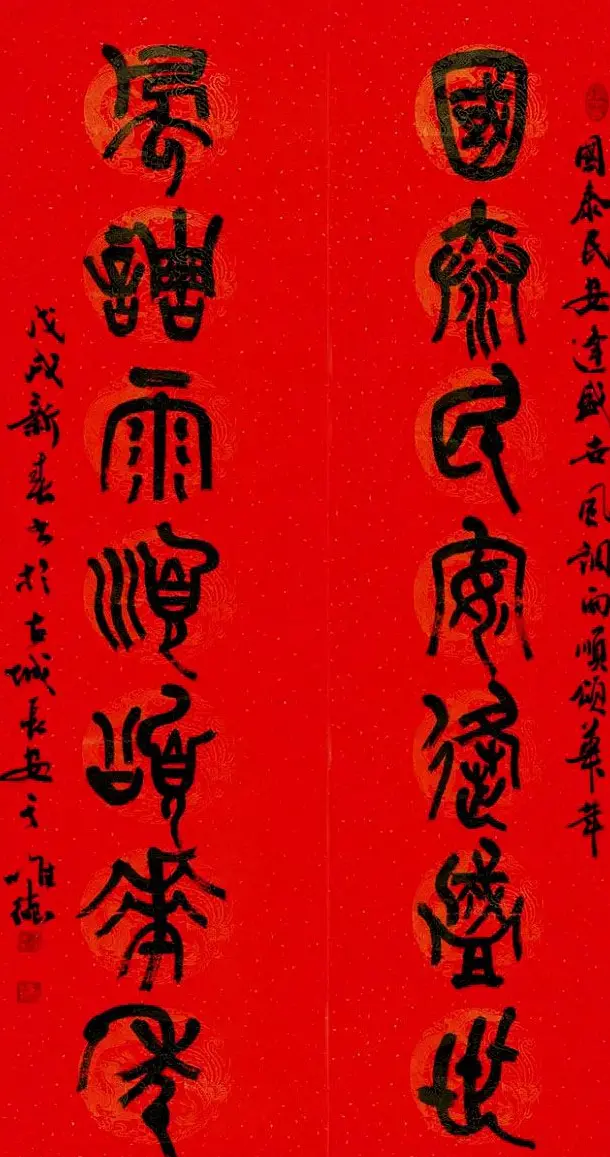 国泰民安逢盛世风調雨順頌華年
國泰民安逢盛世
風調雨順頌華年
戊戌新春书於古城長安